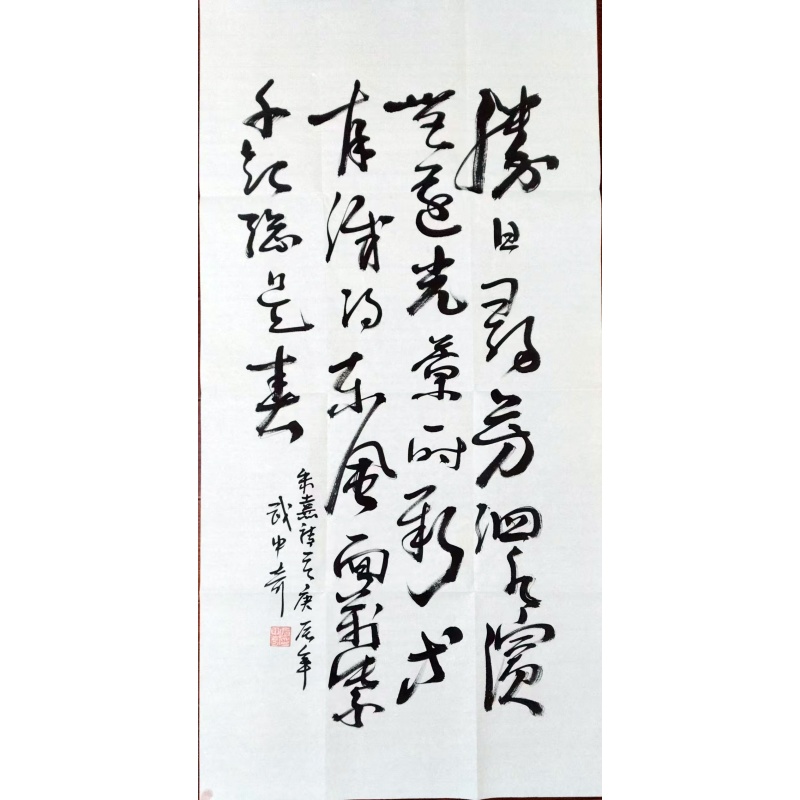 勝日尋芳泗水濱
無邊光景一时新等
閒識得东風面萬紫
千紅總是春
朱熹詩庚辰年
武中奇